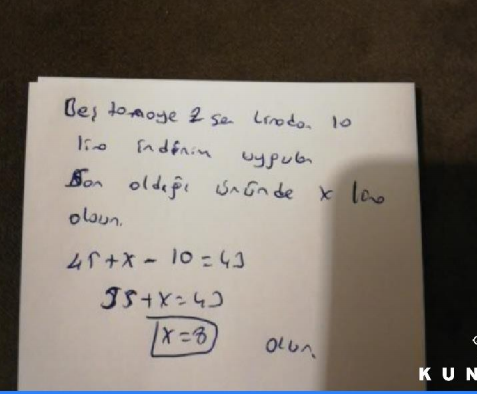 Beş 2 şer liradan 10
lira indirim uygular
Son aldığı üründe x lira
olsun.
45+x-10=43
35+x=43
x=8 olur.
KUN